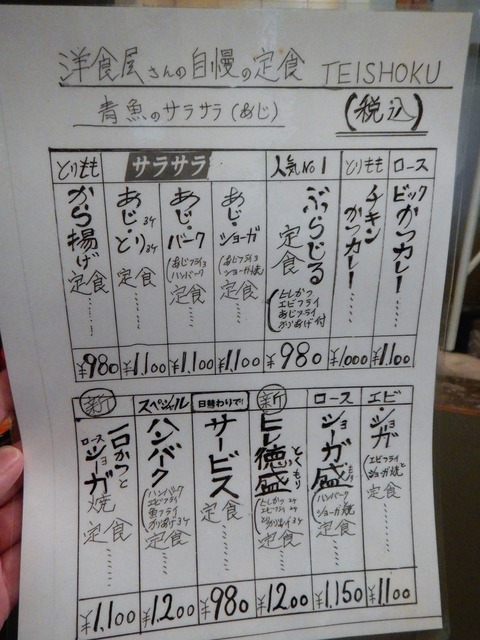 洋食屋さんの自慢の定食 TEISHOKU
青魚のサラサラ(あじ)
(税込)
ロース
ビックかつカレー……
¥1,100
とりもも
チキンかつカレー……
¥1,000
人気No1
ぶらじる定食
(ヒレかつ
エビフライ
あじフライ
からあげ付)
¥980
サラサラ
あじ・ショーガ
(あじフライヨ
ショーガ焼)
定食……
¥1,100
あじ・バーグ
(あじフライヨ
ハンバーグ)
定食……
¥1,100
あじ3ケ・とり3ケ
定食……
¥1,100
とりもも
から揚げ定食……
¥980
エビ・ショガ
(エビフライと
ショーガ焼)
定食……
¥1,100
ロース
ショーガ盛もり
(ハンバーグ
ショーガ焼)
定食……
¥1,150
新
ヒレ徳盛とくもり
定食……
¥1,200
日替わりで!!
サービス定食……
¥980
スペシャル
ハンバーク
(ハンバーク
エビフライ
魚フライ
からあげ3ケ)
定食……
¥1,200
新
一口かつとロースショーガ焼
定食……
¥1,100